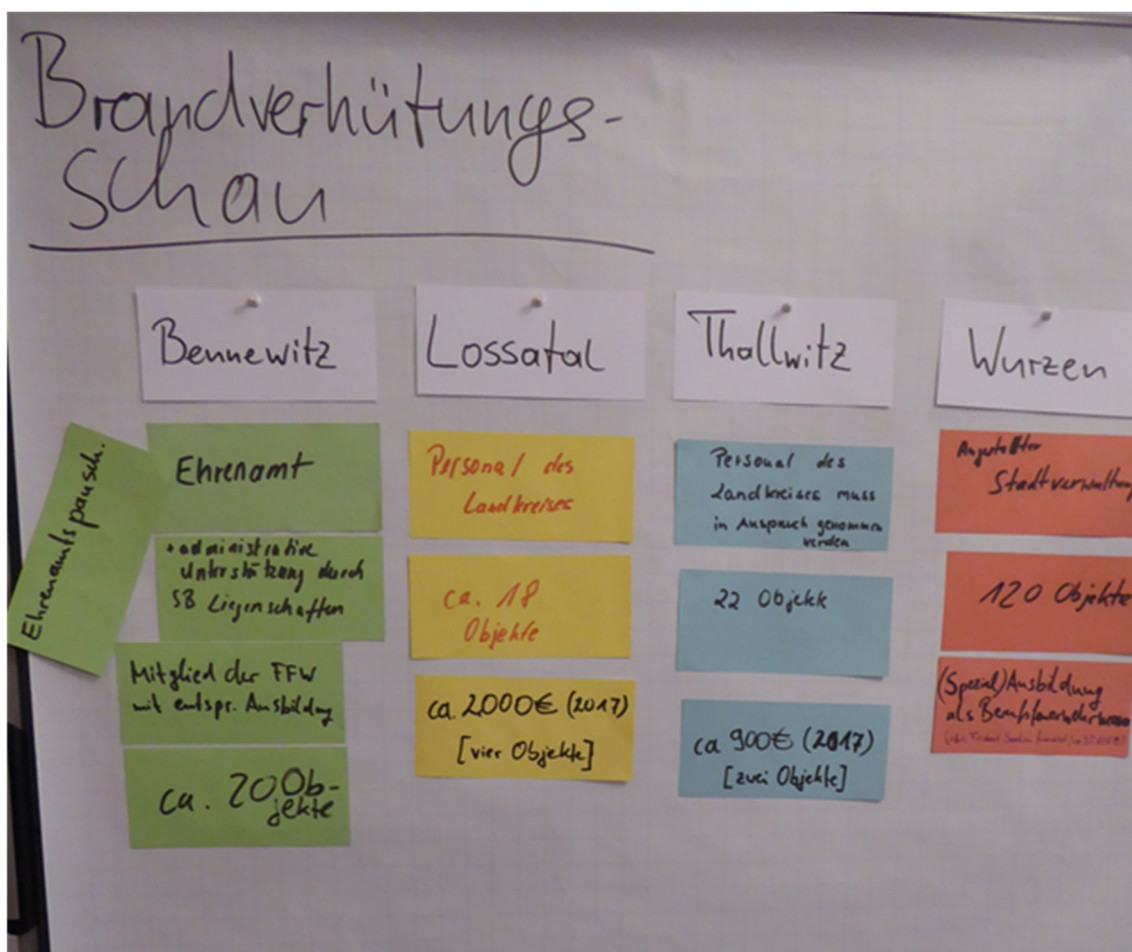 Brandverhütungs-
schau
Bennewitz
Ehrenamtspausch.
Ehrenamt
+ administrative
Unterstützung durch
SB Liegenschaften
Mitglied der FFW
mit entspr. Ausbildung
ca. 20 Ob-
jekte
Lossatal
Personal des
Landkreises
ca. 18
Objekte
ca. 2000€ (2017)
[vier Objekte]
Thallwitz
Personal des
Landkreises muss
in Anspruch genommen
werden
22 Objekte
ca 900€ (2017)
[zwei Objekte]
Wurzen
Angestellter
Stadtverwaltung
120 Objekte
(Spezial)Ausbildung
als Berufsfeuerwehrmann